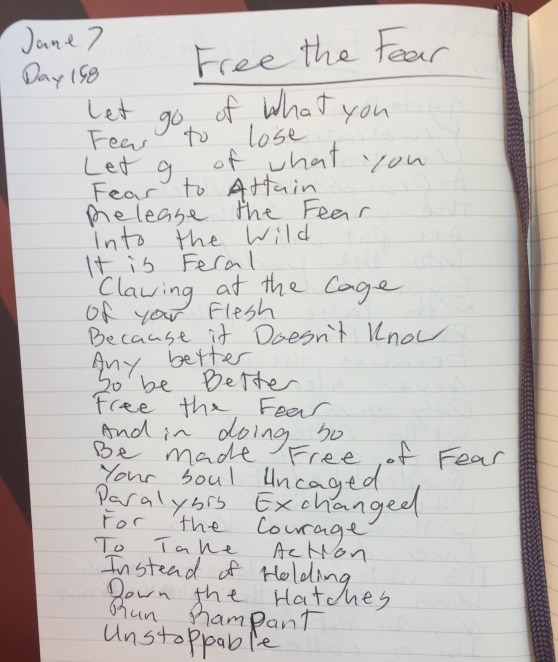 June 7
Day 158
Free the Fear
Let go of what you
Fear to lose
Let g of what you
Fear to Attain
Release the Fear
Into the Wild
It is Feral
Clawing at the Cage
Of your Flesh
Because it Doesn't Know
Any better
So be Better
Free the Fear
And in doing so
Be made Free of Fear
Your Soul Uncaged
Paralysis Exchanged
For the Courage
To Take Action
Instead of Holding
Down the Hatches
Run Rampant
Unstoppable